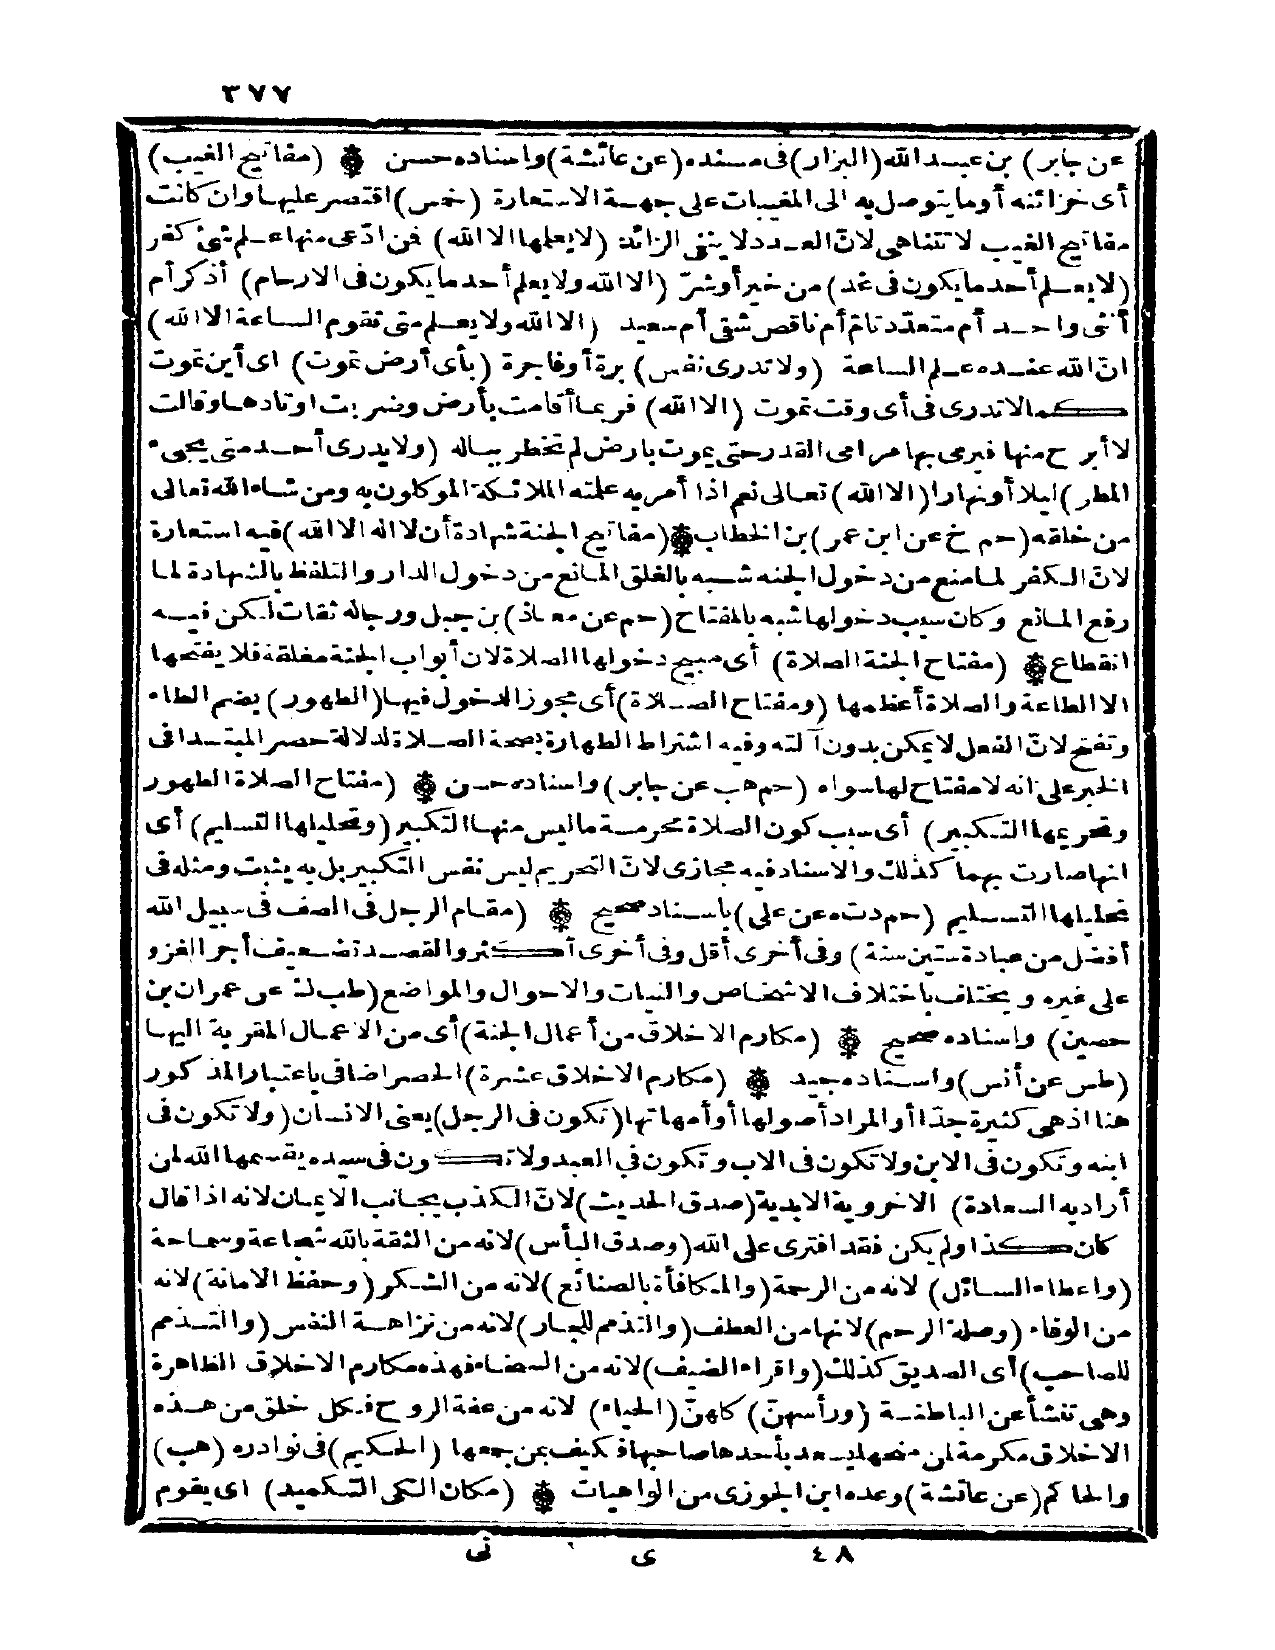 ٣٧٧
عن جابر) بن عبد الله (البزار) فى مسنده (عن عائشة) واسناده حسن ۞ (مفاتيح الغيب)
أى خزائنه أو ما يتوصل به الى المغيبات على جهة الاستعارة (خمس) اقتصر عليها وان كانت
مفاتيح الغيب لا تتناهى لانّ العدد لا ينفى الزائد (لا يعلمها الا الله) فمن ادّعى منها علم شئ كفر
(لا يعلم أحد ما يكون فى غد) من خير أو شرّ (الا الله ولا يعلم أحد ما يكون فى الارحام) أذكر أم
أنثى واحد أم متعدّد تامّ أم ناقص شقى أم سعيد (الا الله ولا يعلم متى تقوم الساعة الا الله)
انّ الله عنده علم الساعة (ولا تدرى نفس) برة أو فاجرة (بأى أرض تموت) اى أين تموت
كما لا تدرى فى أى وقت تموت (الا الله) فربما أقامت بأرض وضربت اوتادها وقالت
لا أبرح منها فيرمى بها مرامى القدر حتى يموت بارض لم تخطر بباله (ولا يدرى أحد متى يجىء
المطر) ليلا أو نهارا (الا الله) تعالى نعم اذا أمر به علمته الملائكة الموكلون به ومن شاء الله تعالى
من خلقه (حم خ عن ابن عمر) بن الخطاب ۞ (مفاتيح الجنة شهادة أن لا اله الا الله) فيه استعارة
لانّ الكفر لما منع من دخول الجنه شبه بالغلق المانع من دخول الدار والتلفظ بالشهادة لما
رفع المانع وكان سبب دخولها شبه بالمفتاح (حم عن معاذ) بن جبل ورجاله ثقات لكن فيه
انقطاع ۞ (مفتاح الجنة الصلاة) أى مبيح دخولها الصلاة لان أبواب الجنة مغلقة فلا يفتحها
الا الطاعة والصلاة أعظمها (ومفتاح الصلاة) أى مجوز الدخول فيها (الطهور) بضم الطاء
وتفتح لانّ الفعل لا يمكن بدون آلته وفيه اشتراط الطهارة لصحة الصلاة لدلالة حصر المبتدا فى
الخبر على انه لا مفتاح لها سواه (حم هب عن جابر) واسناده حسن ۞ (مفتاح الصلاة الطهور
وتحريمها التكبير) أى سبب كون الصلاة محرمة ما ليس منها التكبير (وتحليلها التسليم) أى
انها صارت بهما كذلك والاسناد فيه مجازى لانّ التحريم ليس نفس التكبير بل به يثبت ومثله فى
تحليلها التسليم (حم د ت ه عن على) باسناد صحيح ۞ (مقام الرجل فى الصف فى سبيل الله
أفضل من عبادة ستين سنة) وفى أخرى أقل وفى أخرى أكثر والقصد تضعيف أجر الغزو
على غيره ويختلف باختلاف الاشخاص والنيات والاحوال والمواضع (طب ك عن عمران بن
حصين) واسناده صحيح ۞ (مكارم الاخلاق من أعمال الجنة) أى من الاعمال المقربة اليها
(طس عن أنس) واسناده جيد ۞ (مكارم الاخلاق عشرة) الحصر اضافى باعتبار المذكور
هنا اذ هى كثيرة جدّا أو المراد أصولها أو أمهاتها (تكون فى الرجل) يعنى الانسان (ولا تكون فى
ابنه وتكون فى الابن ولا تكون فى الاب وتكون فى العبد ولا تكون فى سيده يقسمها الله لمن
أراد به السعادة) الاخروية الابدية (صدق الحديث) لانّ الكذب يجانب الايمان لانه اذا قال
كان كذا ولم يكن فقد افترى على الله (وصدق البأس) لانه من الثقة بالله شجاعة وسماحة
(واعطاء السائل) لانه من الرحمة (والمكافأة بالصنائع) لانه من الشكر (وحفظ الامانة) لانه
من الوفاء (وصلة الرحم) لانها من العطف (والتذمم للجار) لانه من نزاهة النفس (والتذمم
للصاحب) أى الصديق كذلك (واقراء الضيف) لانه من السخاء فهذه مكارم الاخلاق الظاهرة
وهى تنشأ عن الباطنة (ورأسهنّ) كلهنّ (الحياء) لانه من عفة الروح فكل خلق من هذه
الاخلاق مكرمة لمن منحها يسعد بأحدها صاحبها فكيف بمن جمعها (الحكيم) فى نوادره (هب)
والحاكم (عن عائشة) وعده ابن الجوزى من الواهيات ۞ (مكان الكى التكميد) اى يقوم
٤٨ ى نى